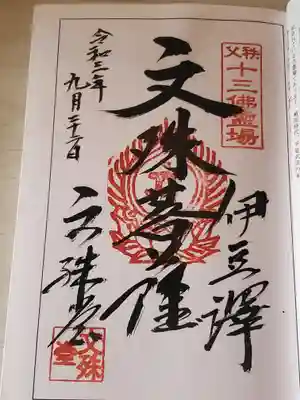 秩父
十三佛霊場
伊豆澤
文殊菩薩
令和三年
九月二十二日
文殊堂
文殊堂